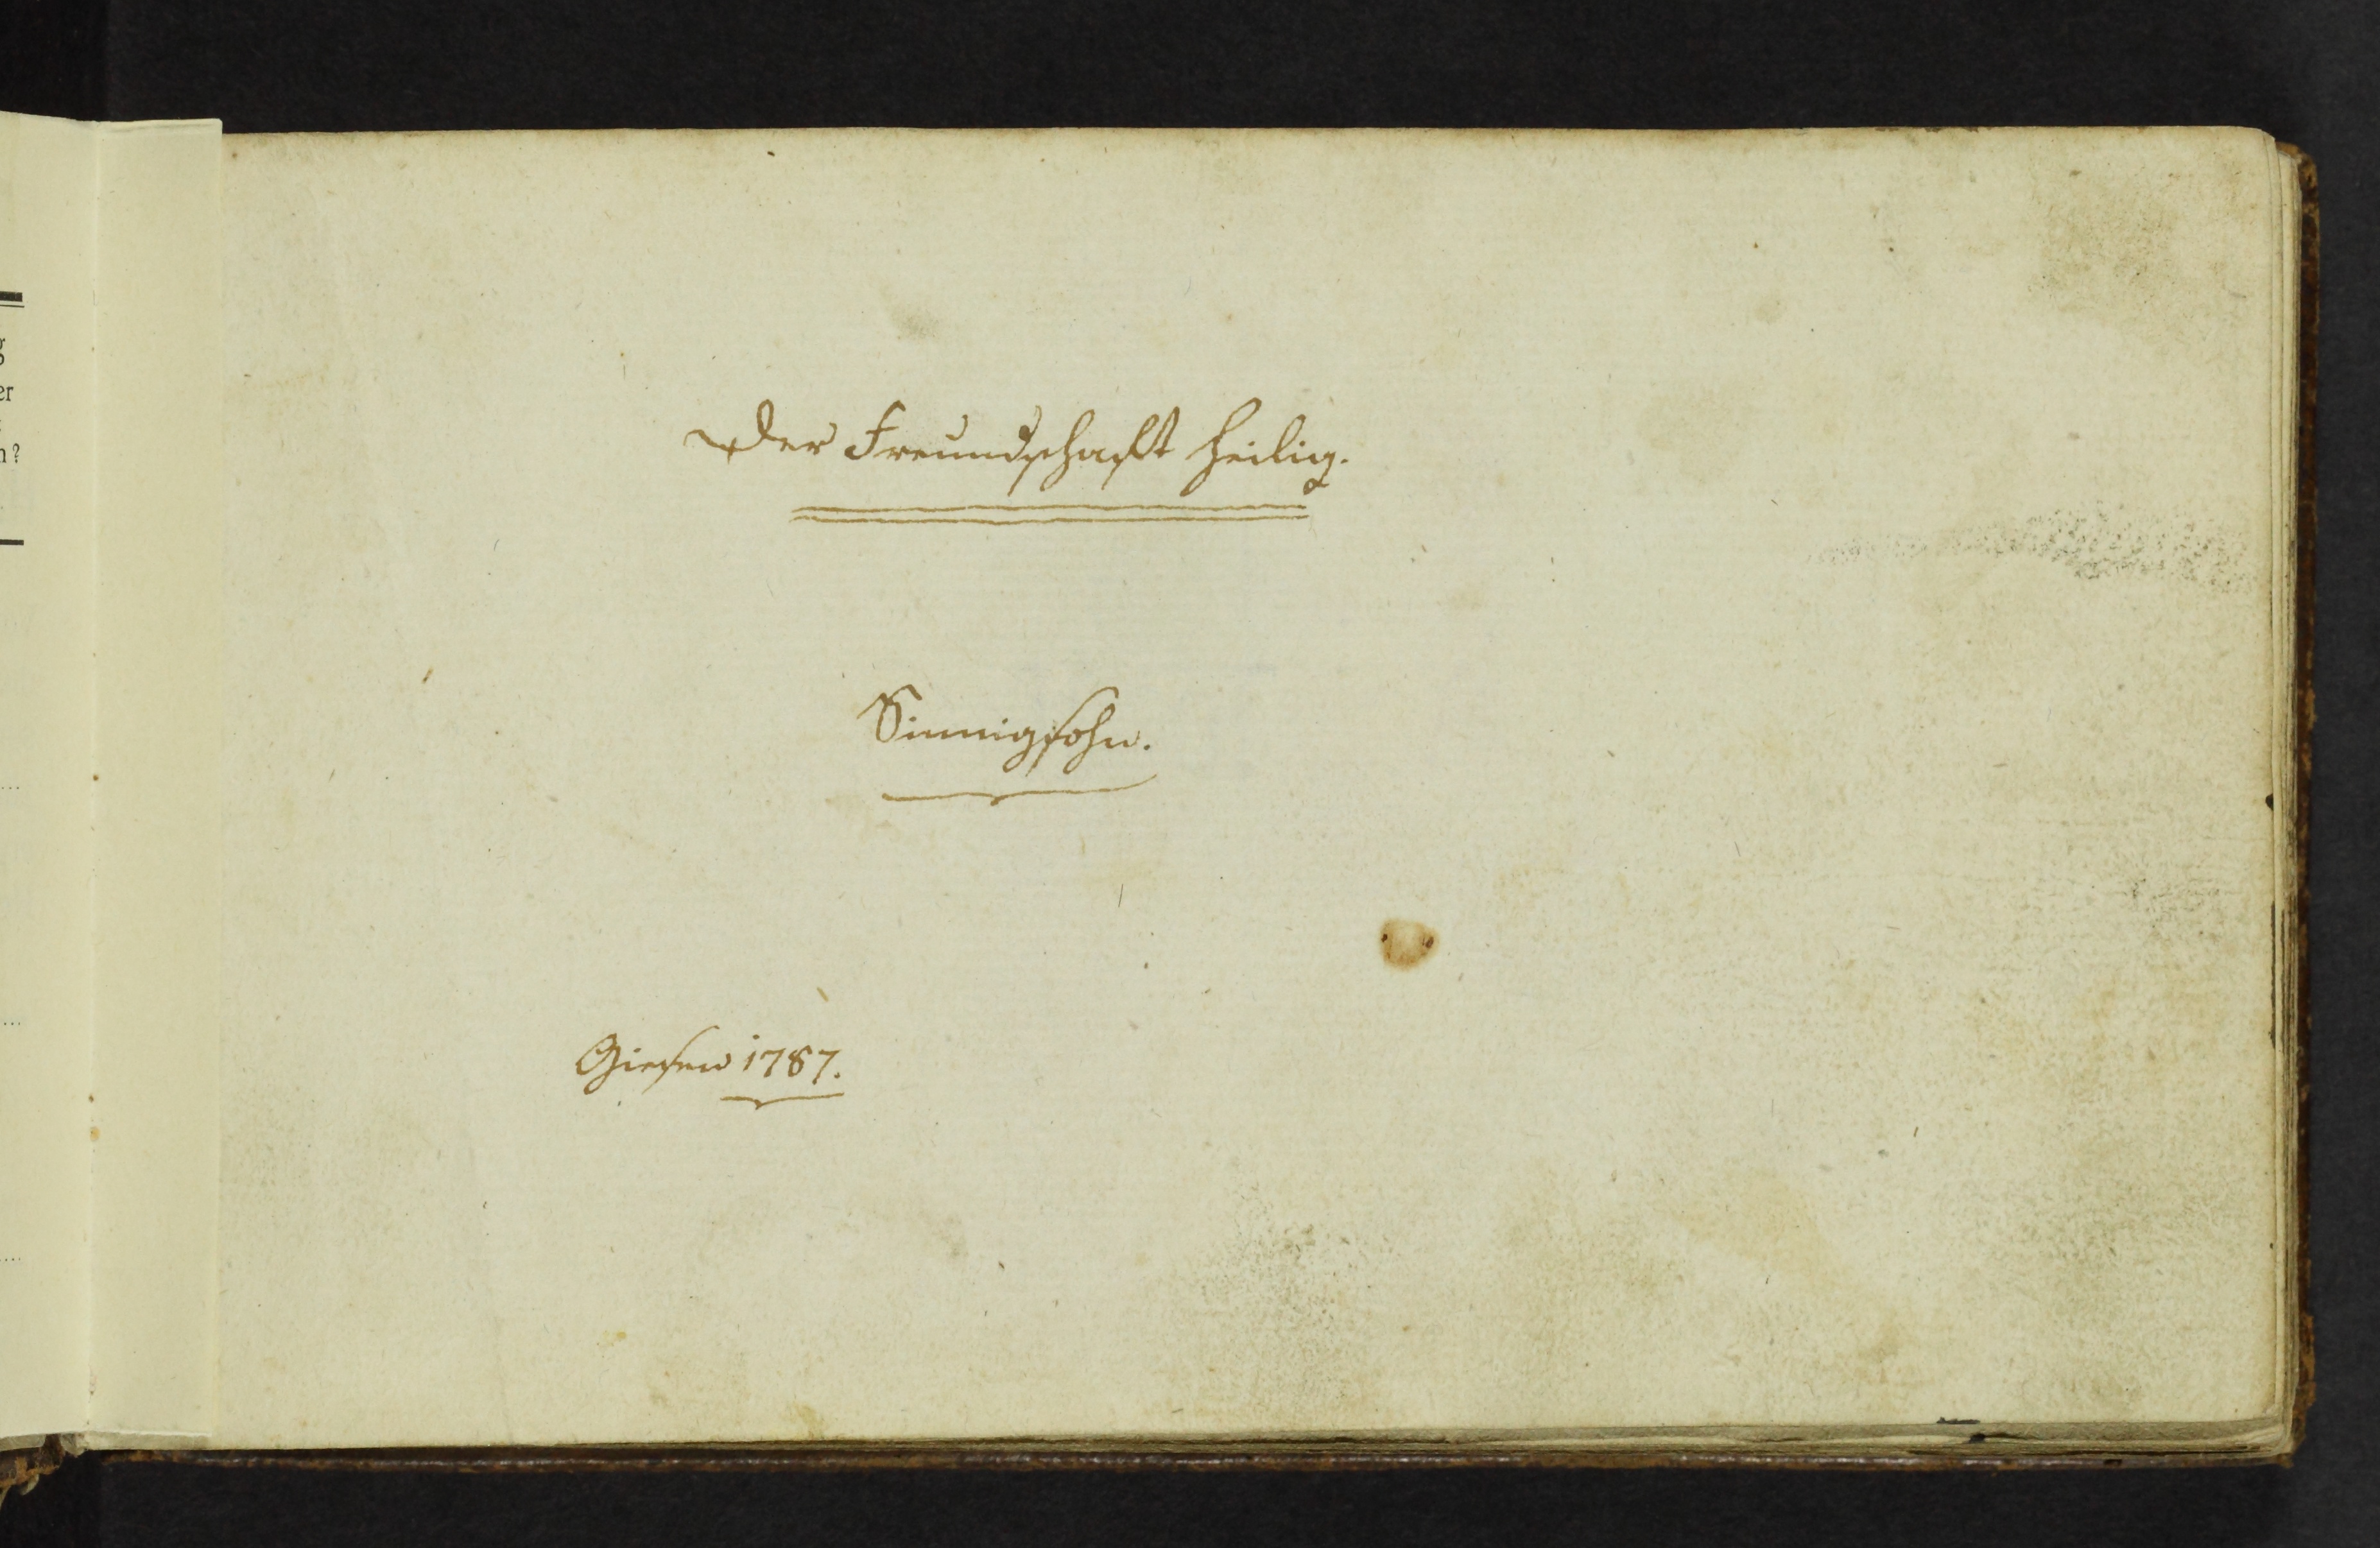 Der Freundschaft heilig.
Sinnigsohn.
Giesen 1787.
er
n?